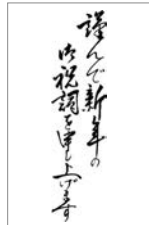 謹んで新年の
御祝詞を申し上げます